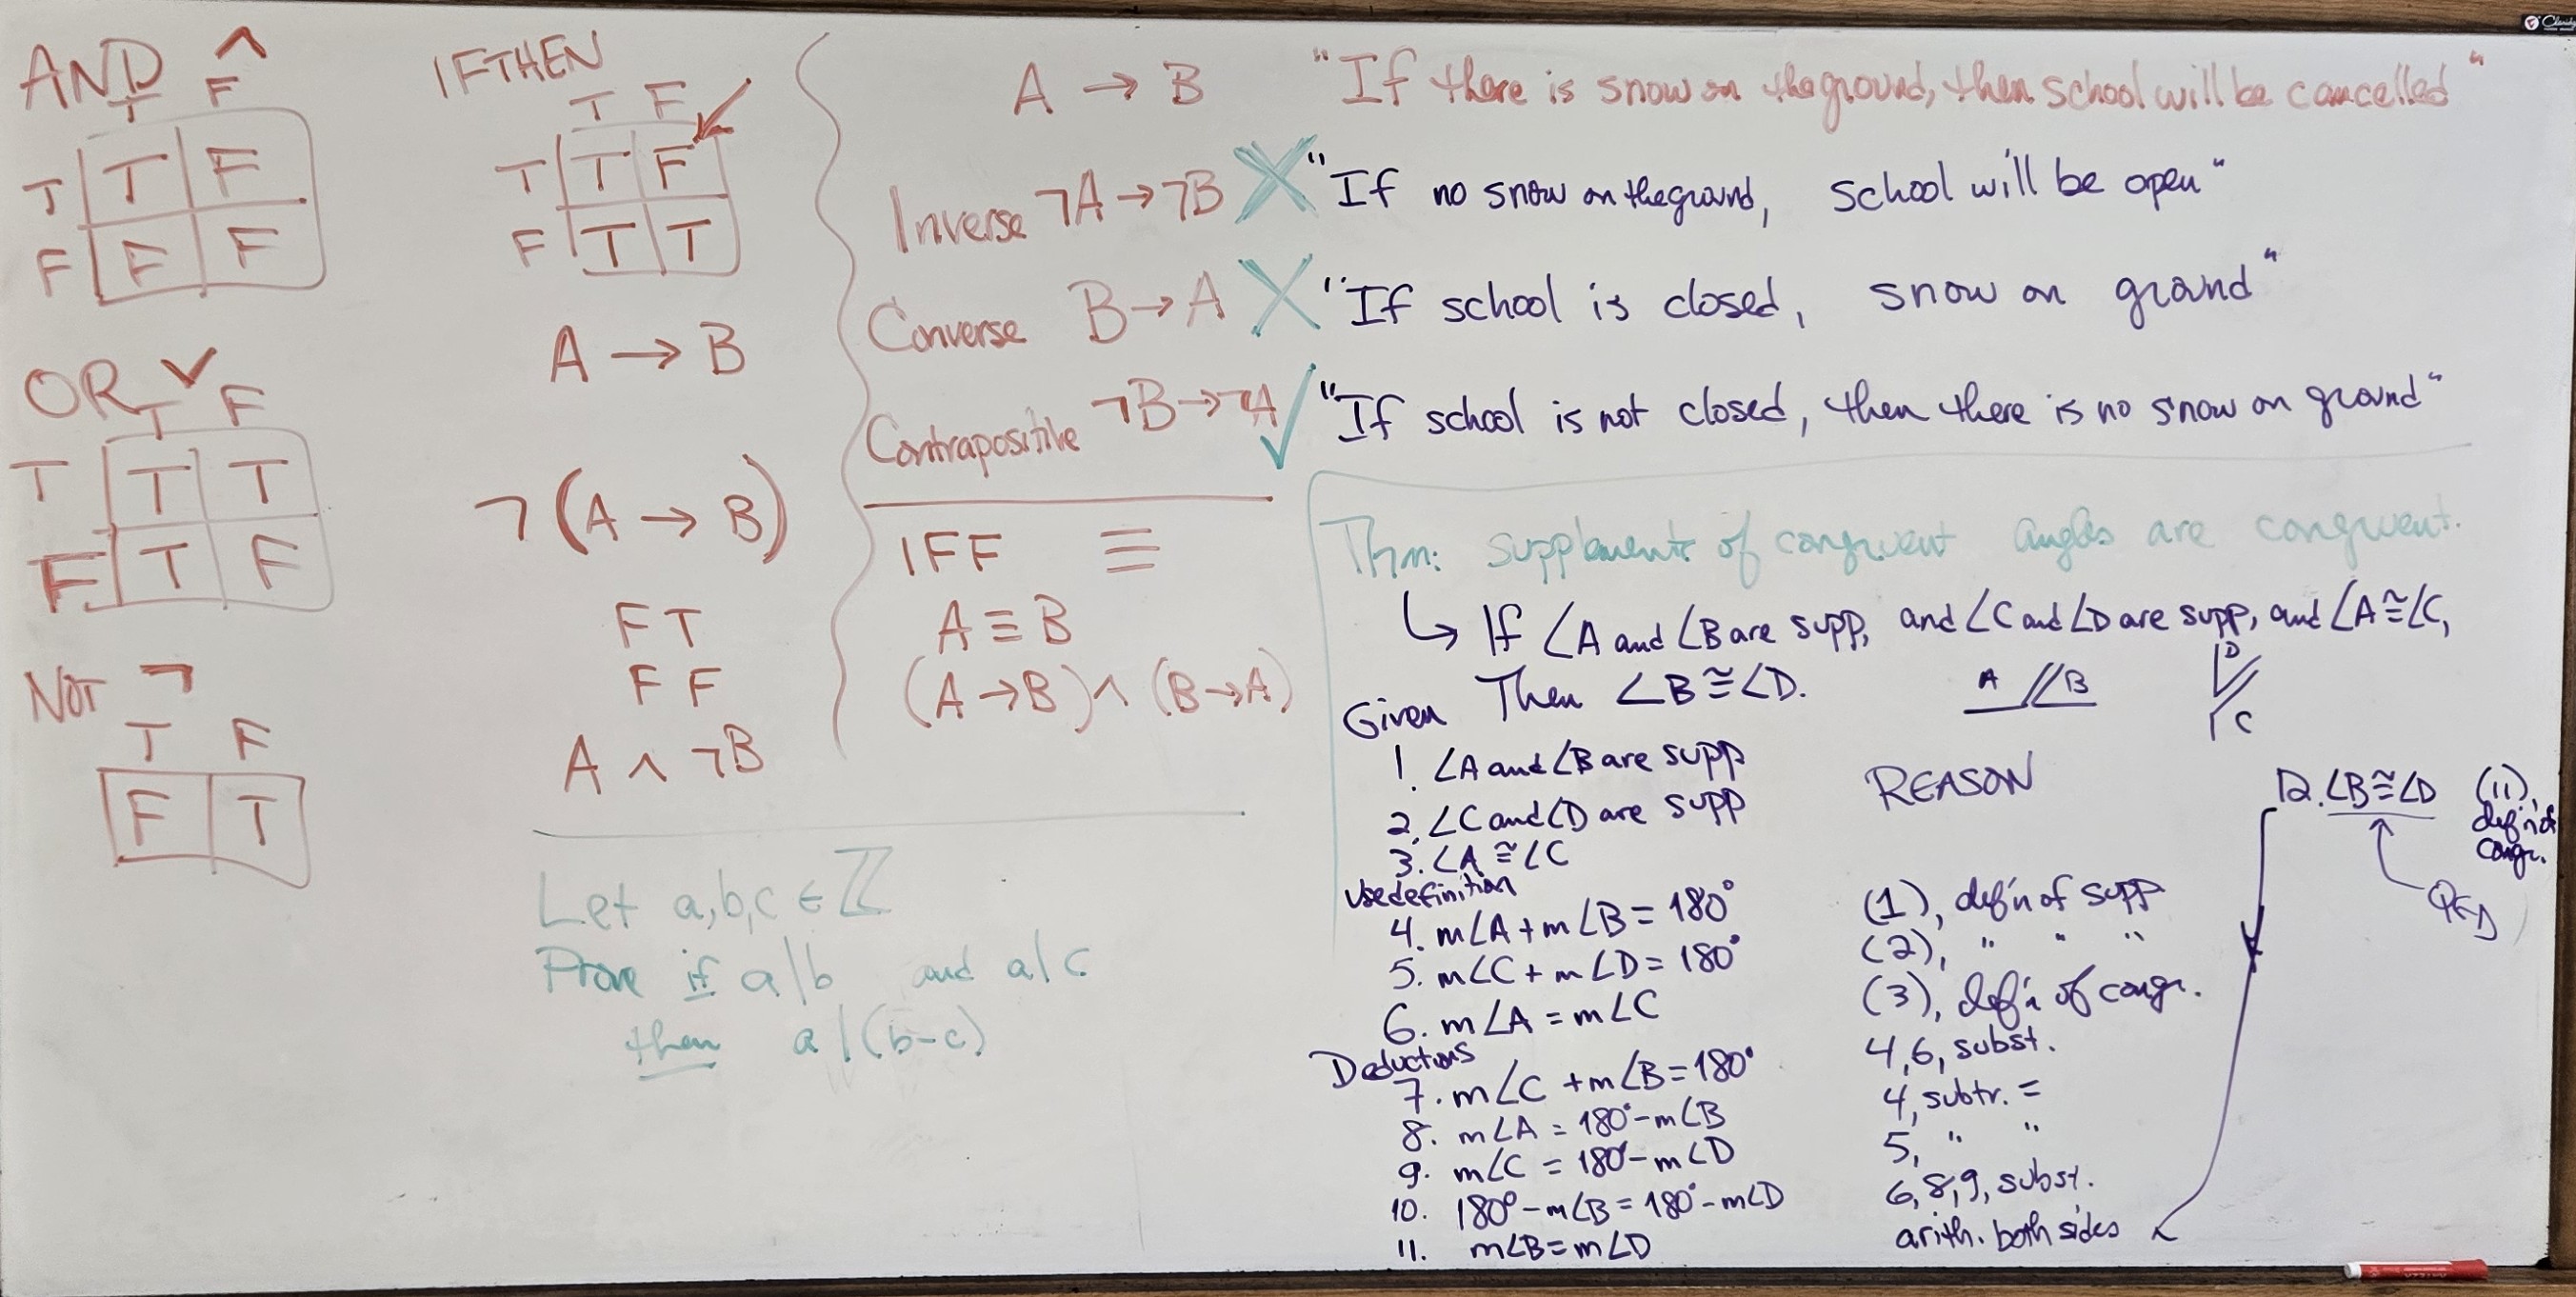 AND ∧
T F
T T F
F F F
OR ∨
T F
T T T
F T F
NOT ¬
T F
F T
IF THEN
T F
T T F
F T T
A → B
¬(A → B)
F T
F F
A ∧ ¬B
A → B "If there is snow on the ground, then school will be cancelled"
Inverse ¬A → ¬B X "If no snow on the ground, school will be open"
Converse B → A X "If school is closed, snow on ground"
Contrapositive ¬B → ¬A ✓ "If school is not closed, then there is no snow on ground"
IFF ≡
A ≡ B
(A → B) ∧ (B → A)
Let a,b,c ∈ ℤ
Prove if a|b and a|c
then a|(b-c)
Thm: Supplements of congruent angles are congruent.
↳ If ∠A and ∠B are supp, and ∠C and ∠D are supp, and ∠A≅∠C,
Then ∠B≅∠D.
A B
D
C
Given
1. ∠A and ∠B are supp
2. ∠C and ∠D are supp
3. ∠A ≅ ∠C
Use definition
REASON
4. m∠A + m∠B = 180° (1), def'n of supp
5. m∠C + m∠D = 180° (2), " " "
6. m∠A = m∠C (3), def'n of congr.
Deductions
7. m∠C + m∠B = 180° 4,6, subst.
8. m∠A = 180° - m∠B 4, subtr. =
9. m∠C = 180° - m∠D 5, " "
10. 180° - m∠B = 180° - m∠D 6,8,9, subst.
11. m∠B = m∠D arith. both sides
12. ∠B≅∠D (11),
def'n of
congr.
QED